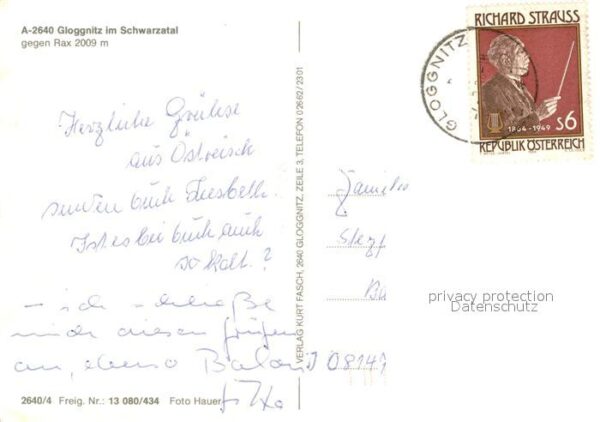 A-2640 Gloggnitz im Schwarzatal
gegen Rax 2009 m
Herzliche Grüße
aus Östreich
senden Euch Liesbeth.
Ist es bei Euch auch
so kalt?
– ich schließe
mich diesen Grüßen
an, ebenso
VERLAG KURT FASCH, 2640 GLOGGNITZ, ZEILE 3, TELEFON 0 26 62 / 23 01
GLOGGNITZ
RICHARD STRAUSS
1864-1949
S6
REPUBLIK ÖSTERREICH
Familie
privacy protection
Datenschutz
2640/4 Freig. Nr.: 13 080/434 Foto Hauer